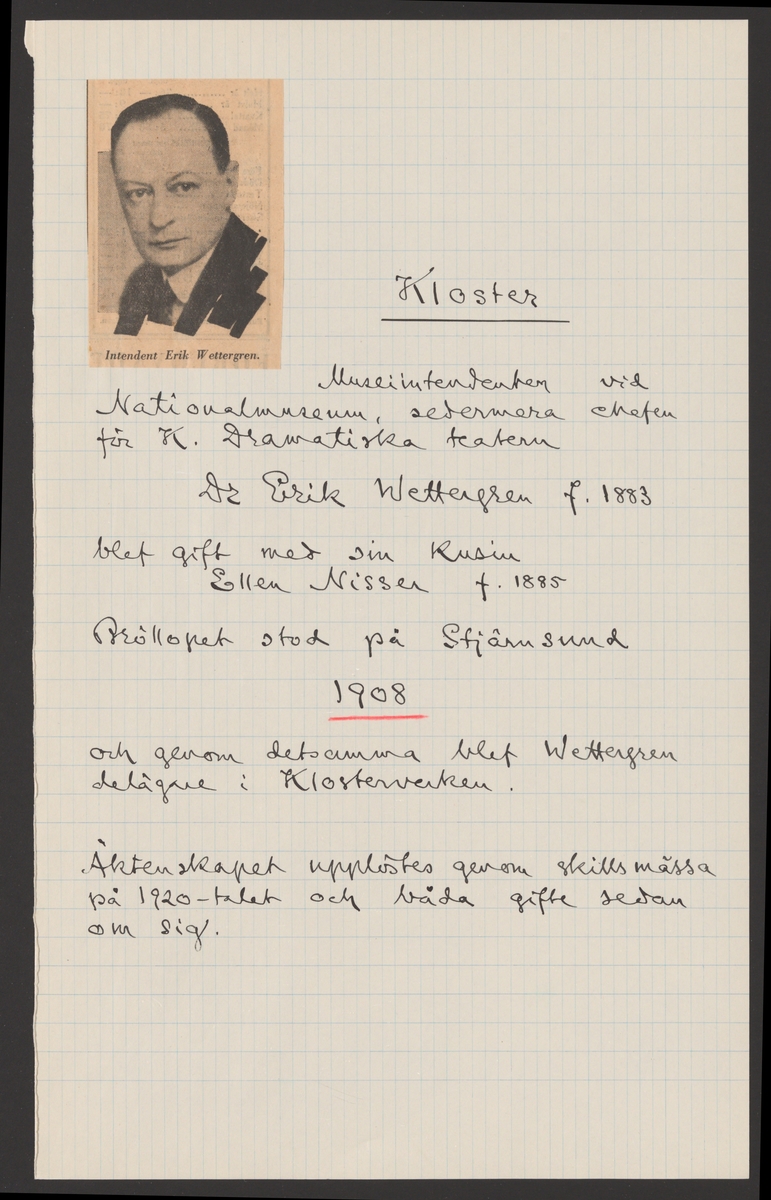 Intendent Erik Wettergren.
Kloster
Museiintendenten vid
Nationalmuseum, sedermera chefen
för K. Dramatiska teatern
Dr Erik Wettergren f. 1883
blef gift med sin kusin
Ellen Nisser f. 1885
Bröllopet stod på Stjärnsund
1908
och genom detsamma blef Wettergren
delägare i Klosterverken.
Äktenskapet upplöstes genom skillsmässa
på 1920-talet och båda gifte sedan
om sig.